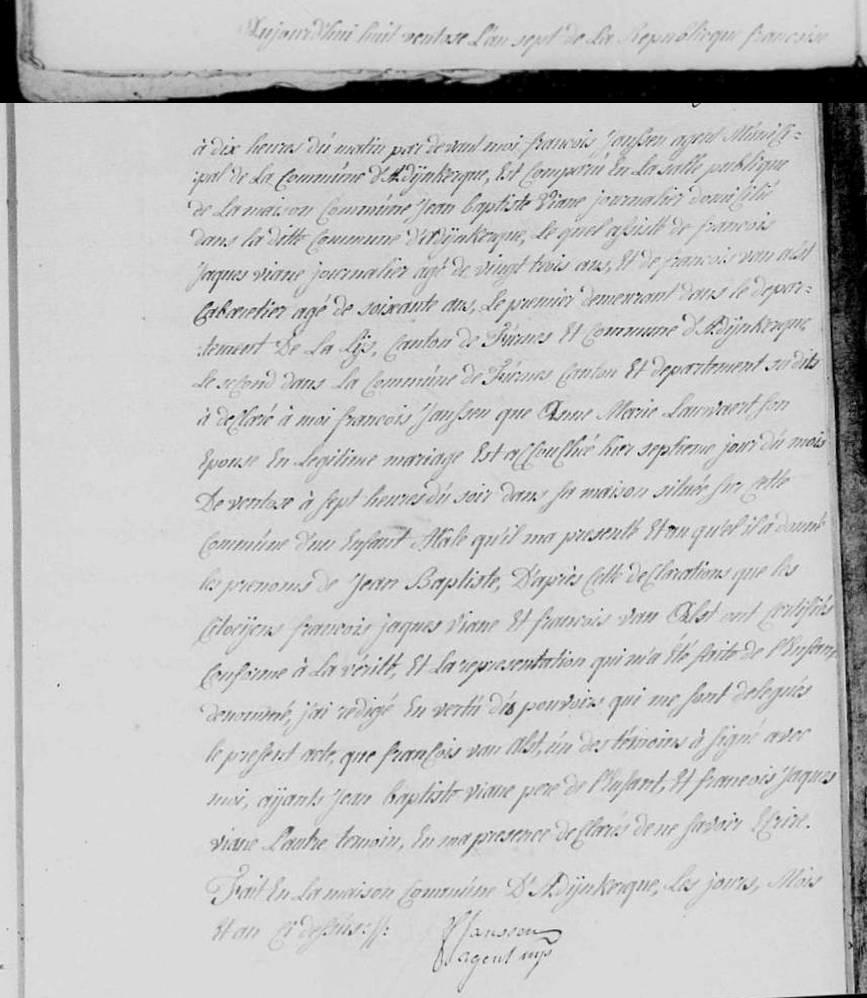 Aujourd'hui huit ventose L'an sept de La Republicque francoise
à dix heures du matin par devant moi francois Janssen agent Munici=
ipal de La Commune d'Adijnkerque, Est Comparu En La salle publique
de La maison Commune Jean baptiste Viane journalier domicilié
dans la ditte Commune d'adijnkerque, Le quel assisté de francois
Jaques viane journalier agé de vingt trois ans, Et de francois van alst
Cabaretier agé de soixante ans, Le premier demeurant dans le depar=
tement De La Lijs, Canton de Furnes Et Commune d'Adijnkerque
Le second dans La Commune de Furnes Canton Et departement susdits
à declaré à moi francois Janssen que Anne Marie son
Epouse En Legitime mariage Est accouchée hier septieme jour du mois
De ventose à sept heures du soir dans sa maison située sur Cette
Commune d'un Enfant Male qu'il ma presenté Et au quel il a donné
les prenoms de Jean Baptiste, D'après Cette declarations que les
Citoijens francois jaques viane Et francois van Alst ont Certifiés
Conforme à La vérité, Et La representation qui m'a Eté faite de l'Enfant
denommé, j'ai redigé En vertu des pouvoirs qui me sont delegués
le present acte, que francois van alst, un des témoins à signé avec
moi, aijants Jean baptiste viane pere de l'Enfant, Et francois Jaques
viane L'autre temoin, En ma presence declarés de ne savoir Ecrire.
Fait En La maison Commune D'Adijnkerque, Les jours, Mois
Et an Ci dessus
Janssen
agent